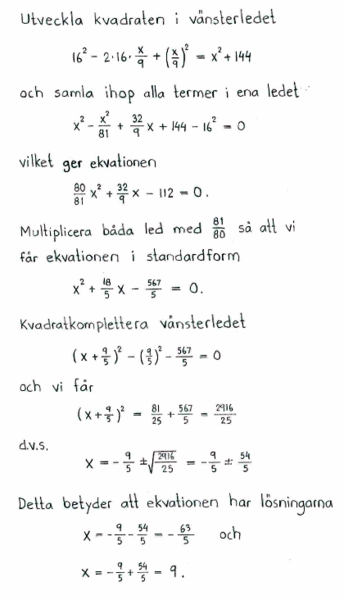 Utveckla kvadraten i vänsterledet
16² − 2·16·x/9 + (x/9)² = x² + 144
och samla ihop alla termer i ena ledet
x² − x²/81 + 32/9 x + 144 − 16² = 0
vilket ger ekvationen
80/81 x² + 32/9 x − 112 = 0.
Multiplicera båda led med 81/80 så att vi
får ekvationen i standardform
x² + 18/5 x − 567/5 = 0.
Kvadratkomplettera vänsterledet
(x + 9/5)² − (9/5)² − 567/5 = 0
och vi får
(x + 9/5)² = 81/25 + 567/5 = 2916/25
d.v.s.
x = − 9/5 ± √(2916/25) = − 9/5 ± 54/5
Detta betyder att ekvationen har lösningarna
x = − 9/5 − 54/5 = − 63/5 och
x = − 9/5 + 54/5 = 9.